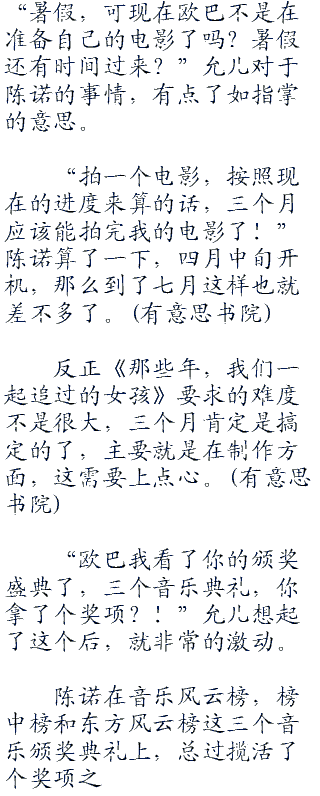 “暑假，可现在欧巴不是在
准备自己的电影了吗？暑假
还有时间过来？”允儿对于
陈诺的事情，有点了如指掌
的意思。
“拍一个电影，按照现
在的进度来算的话，三个月
应该能拍完我的电影了！”
陈诺算了一下，四月中旬开
机，那么到了七月这样也就
差不多了。(有意思书院)
反正《那些年，我们一
起追过的女孩》要求的难度
不是很大，三个月肯定是搞
定的了，主要就是在制作方
面，这需要上点心。(有意思
书院)
“欧巴我看了你的颁奖
盛典了，三个音乐典礼，你
拿了个奖项？！”允儿想起
了这个后，就非常的激动。
陈诺在音乐风云榜，榜
中榜和东方风云榜这三个音
乐颁奖典礼上，总过揽活了
个奖项之